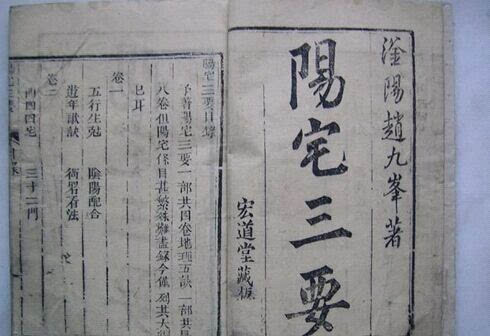 滏陽趙九峯著
陽宅三要
宏道堂藏板
陽宅三要目錄
予著陽宅三要一部共四卷地理五訣一部共
八卷但陽宅條目甚繁殊難盡錄今僅列其大
已耳
卷一
五行生剋 陰陽配合
遊年歌訣 衙署看法
卷二
四宅 三十二門